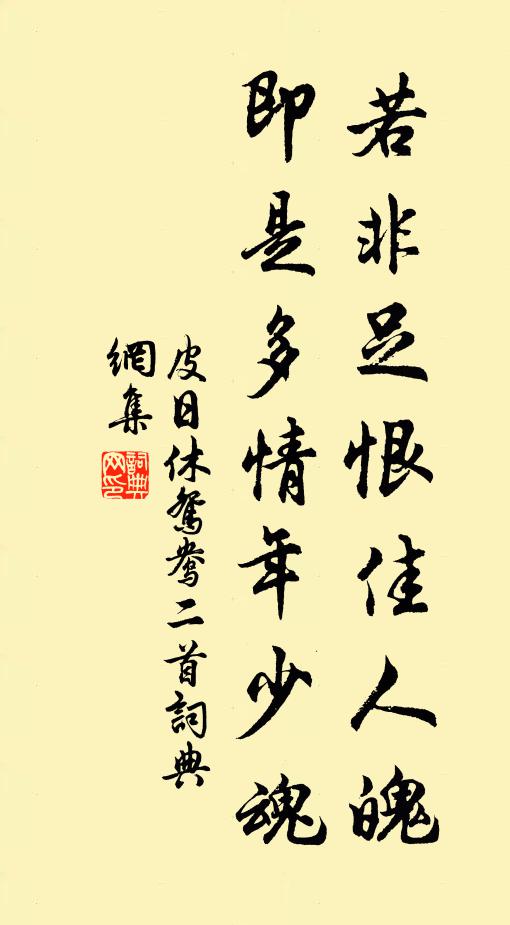 若非足恨佳人魄
即是多情年少魂
皮日休鴛鴦二首詞典
網集
詞典
网印